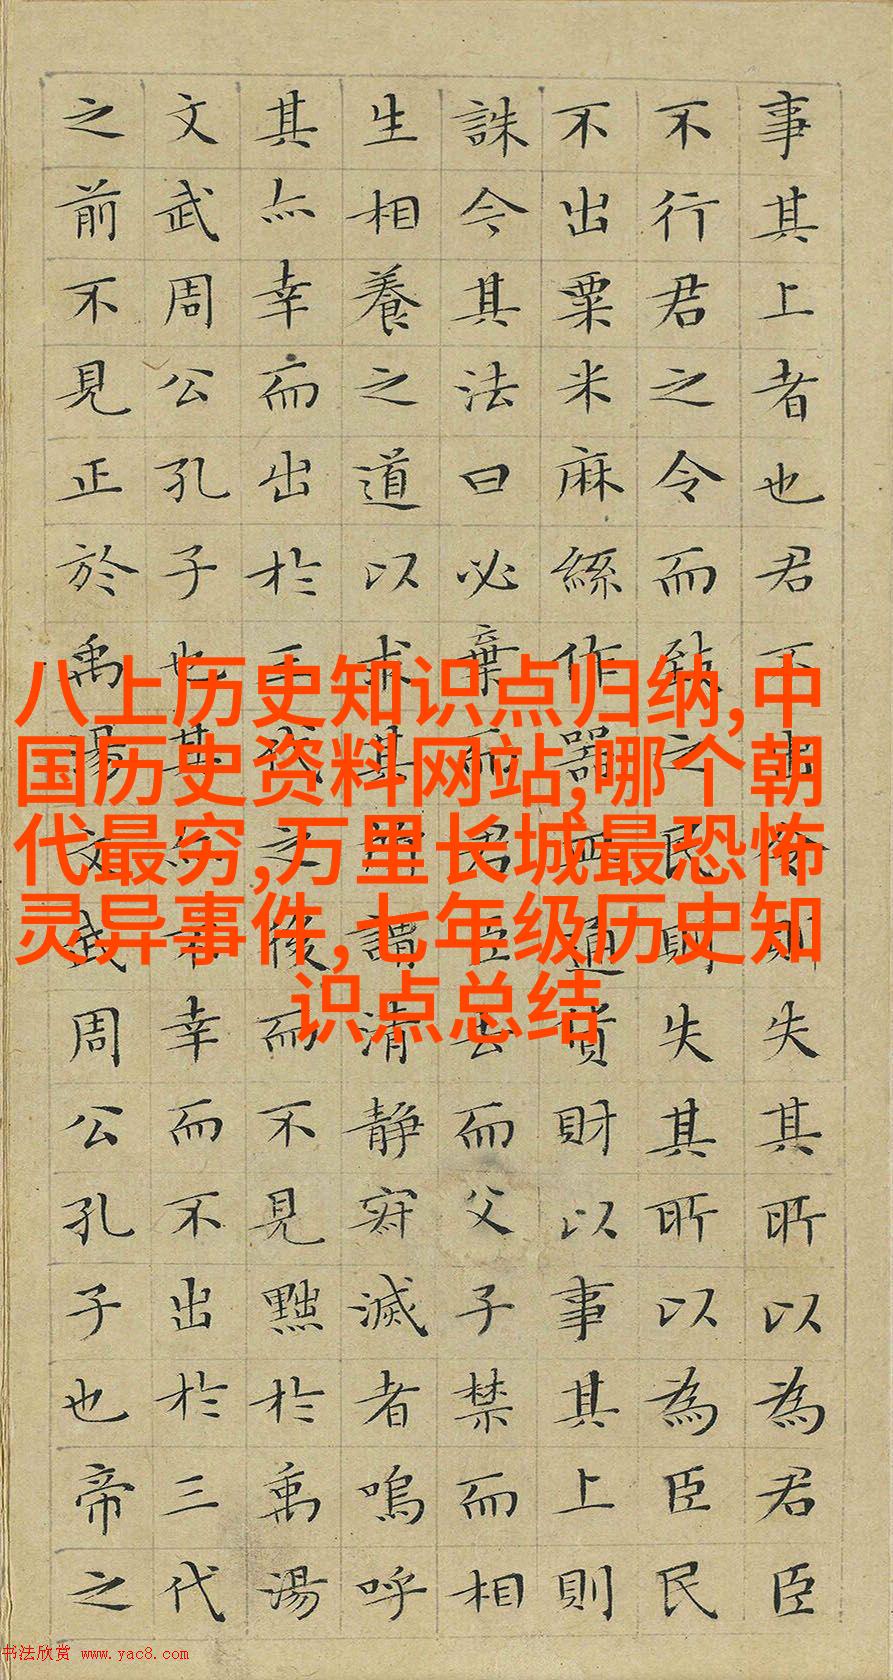 事其上者也君不出令則失其所以為君臣
不行君之令而致之民則失其所以為臣民
不出粟米麻絲作器皿通貨財以事其上則
誅今其法曰必棄而君臣去而父子禁而相
生相養之道以求其所謂清靜寂滅者嗚呼
其亦幸而出於三代之後而不見黜於禹湯
文武周公孔子也其亦不幸而不出於三代
之前不見正於禹湯文武周公孔子也帝之
八上历史知识点归纳,中
国历史资料网站,哪个朝
代最穷,万里长城最恐怖
灵异事件,七年级历史知
识点总结
书法欣赏 www.yac8.com